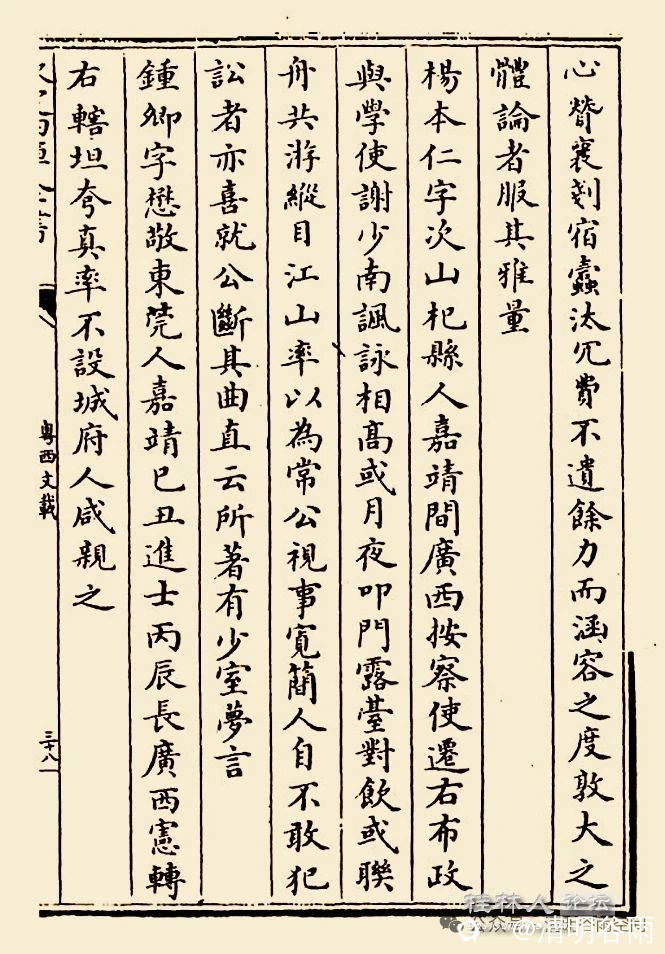 心贊襄剔宿蠹汰冗費不遺餘力而涵容之度敦大之
體論者服其雅量
楊本仁字次山杞縣人嘉靖間廣西按察使遷右布政
與學使謝少南諷詠相髙或月夜叩門露臺對飲或聯
舟共游縱目江山率以為常公視事寬簡人自不敢犯
訟者亦喜就公斷其曲直云所著有少室夢言
鍾卿字懋敬東莞人嘉靖己丑進士丙辰長廣西憲轉
右轄坦夸真率不設城府人咸親之
粤西文載
三十八
桂林人论坛
公众号
@清明谷雨